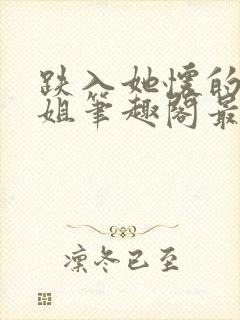 跌入她怀的
姐笔趣阁最
凛冬已至